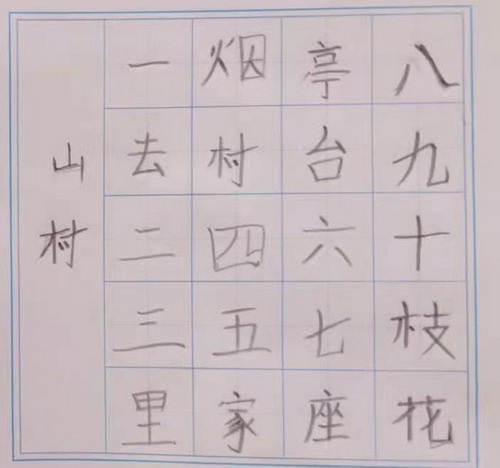 山村
一去二三里
烟村四五家
亭台六七座
八九十枝花